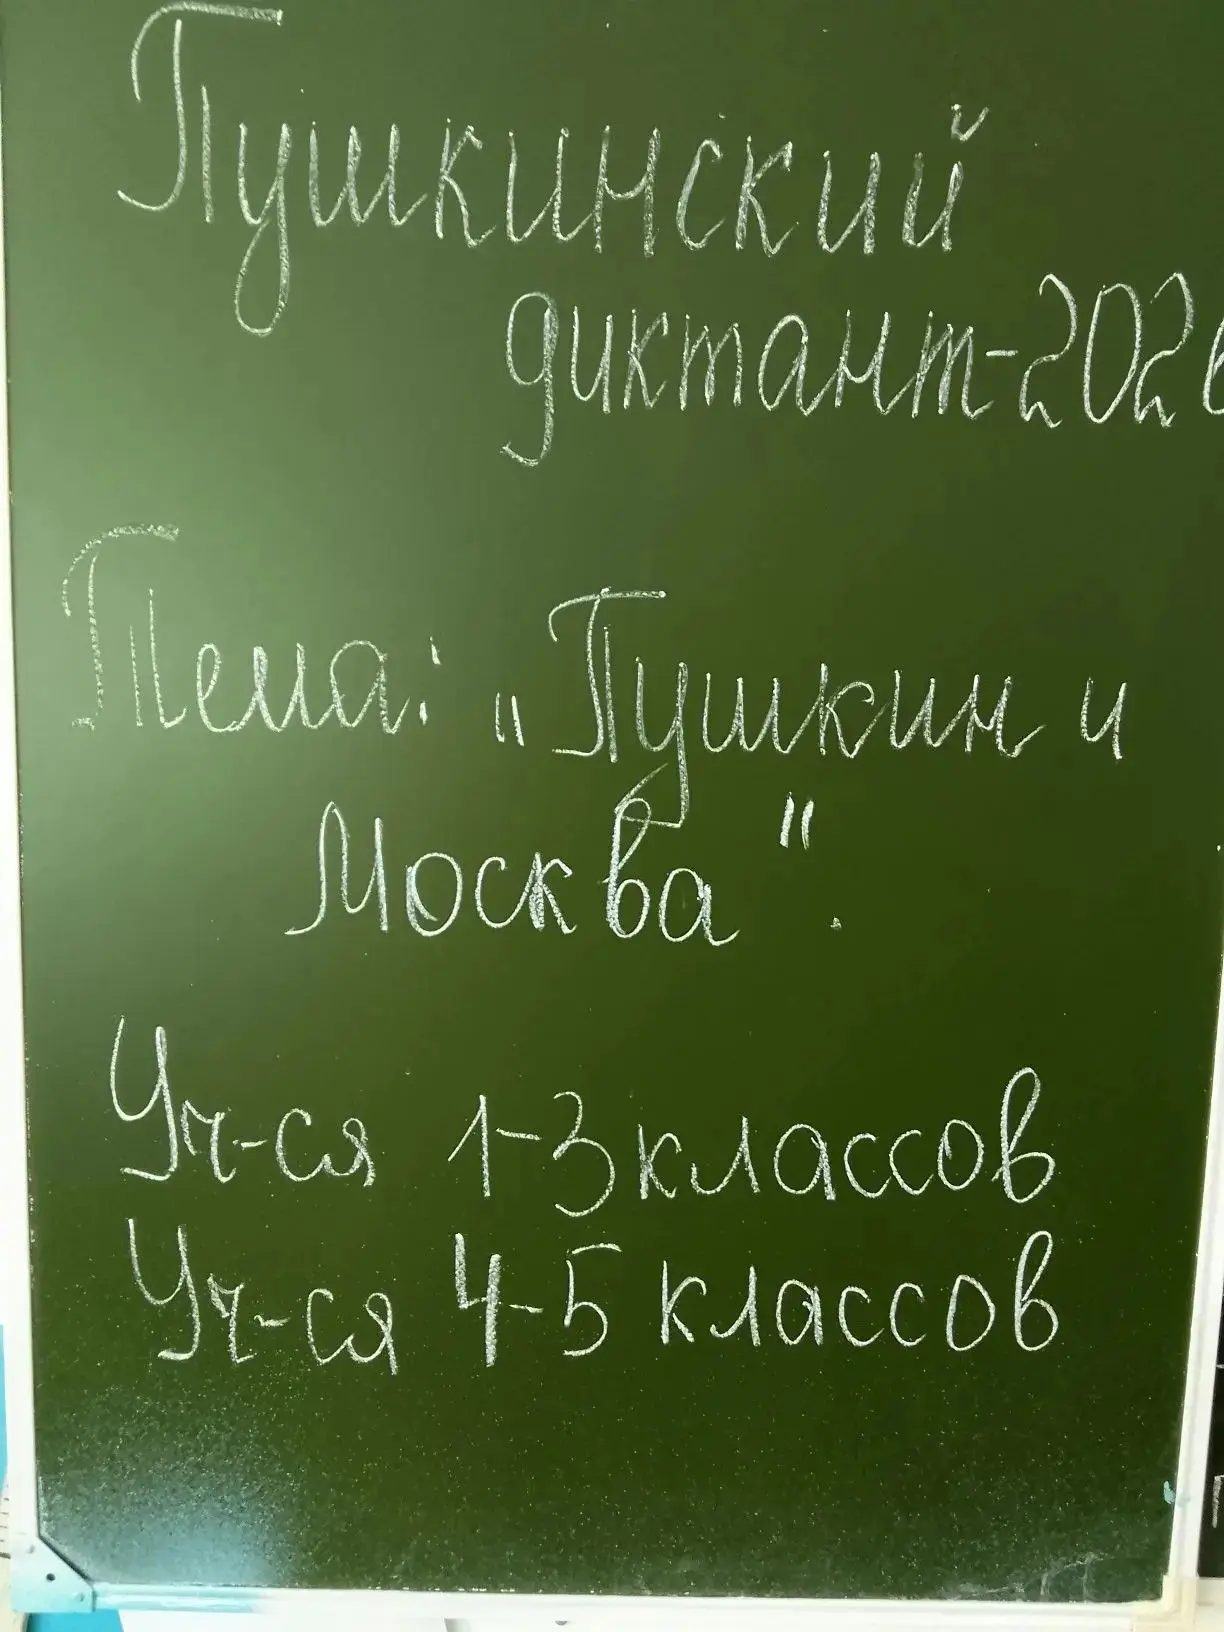 Пушкинский
диктант-2026
Тема: „Пушкин и
Москва".
Уч-ся 1-3 классов
Уч-ся 4-5 классов